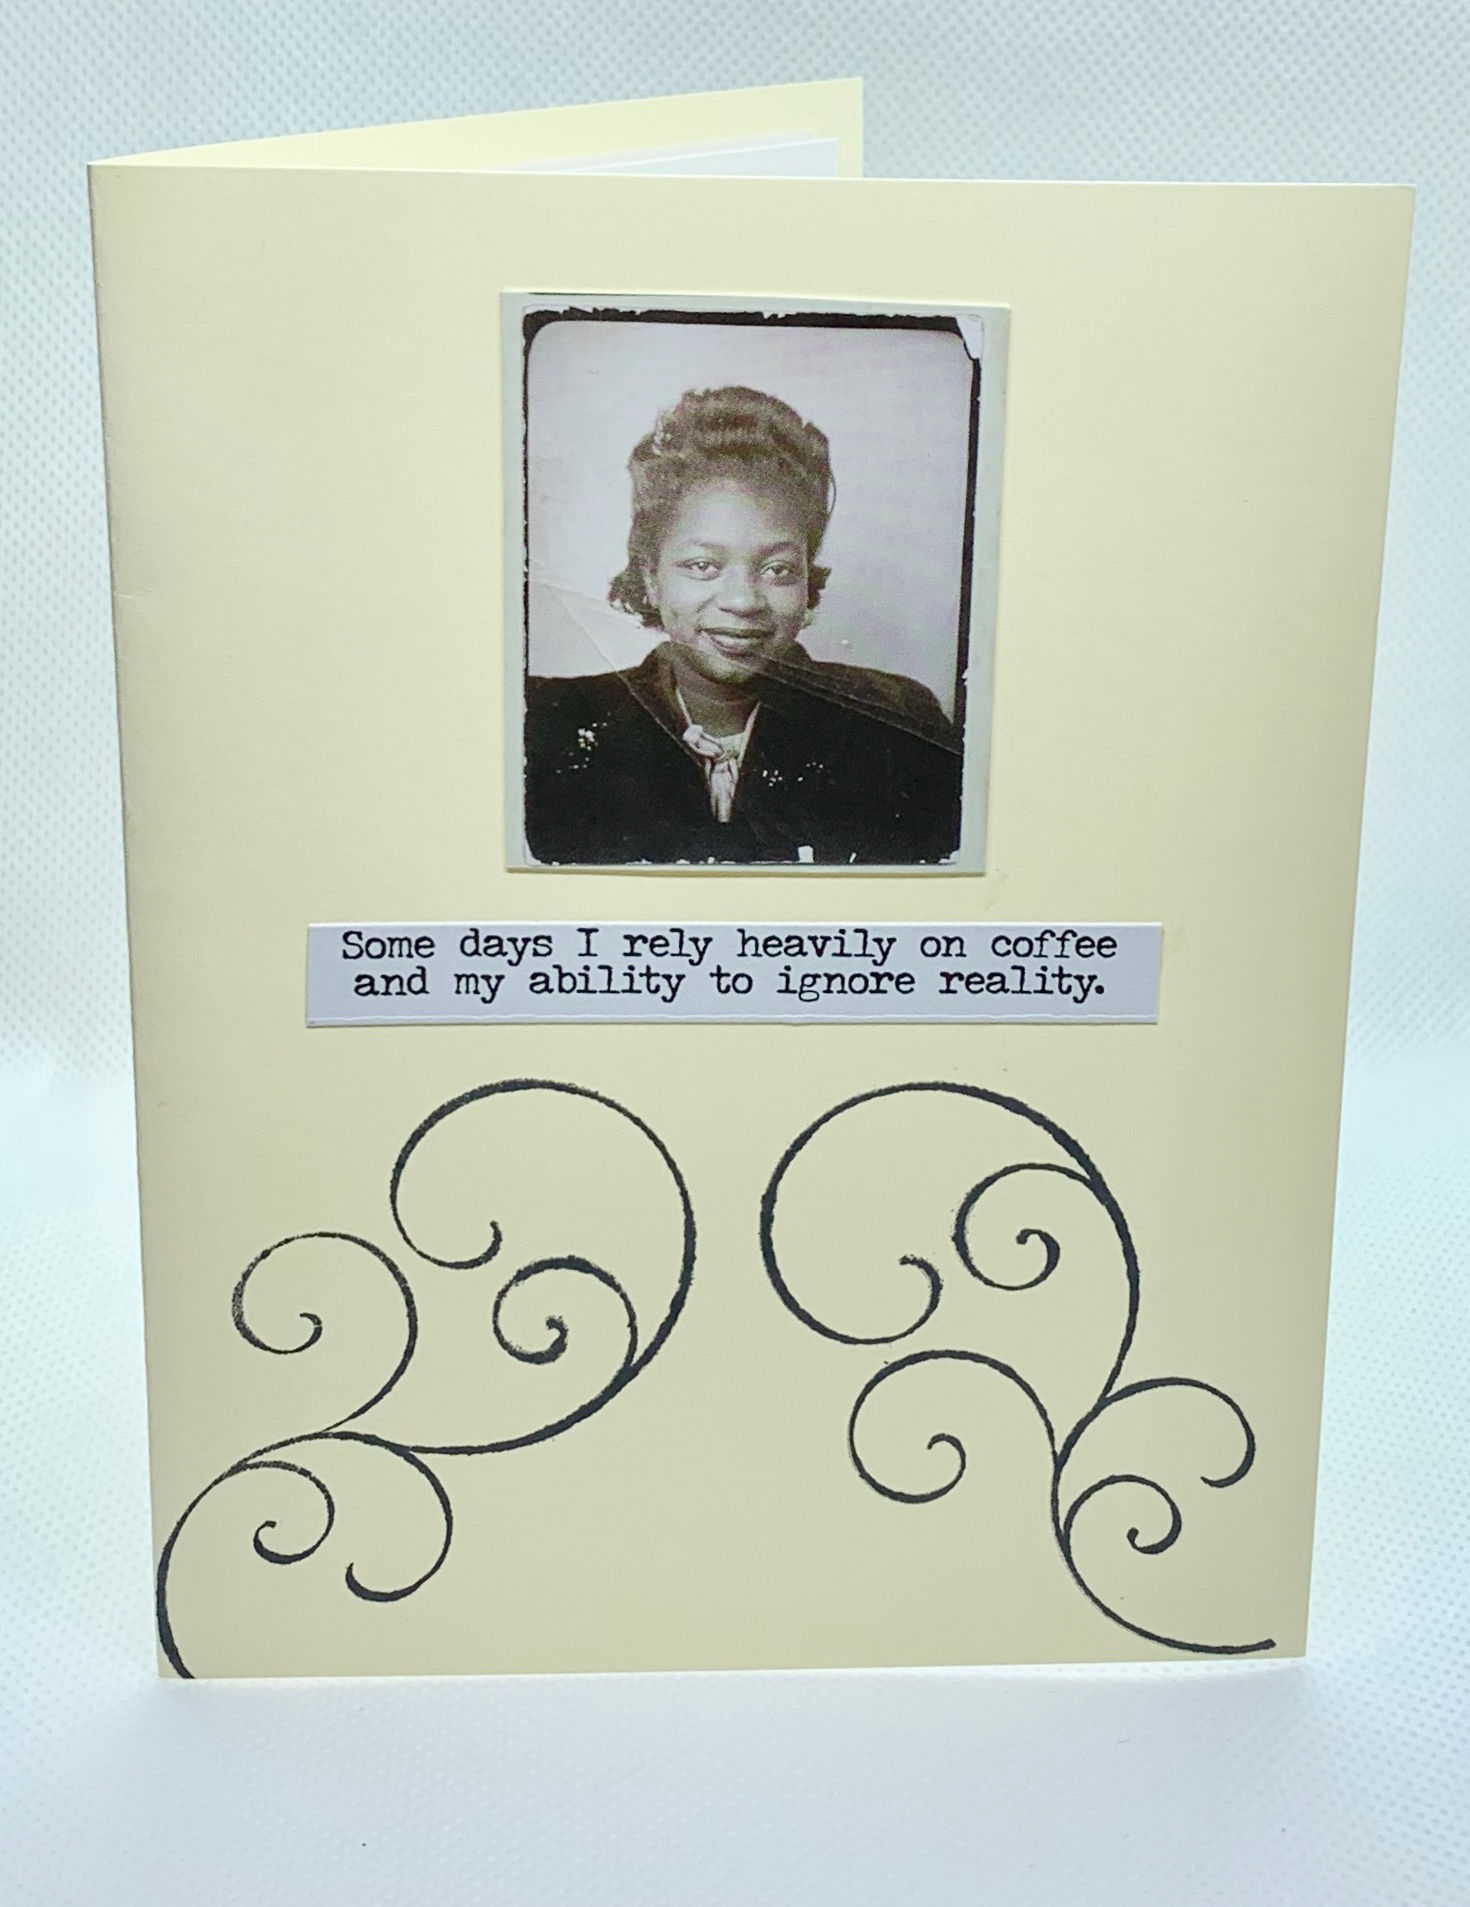 Some days I rely heavily on coffee
and my ability to ignore reality.